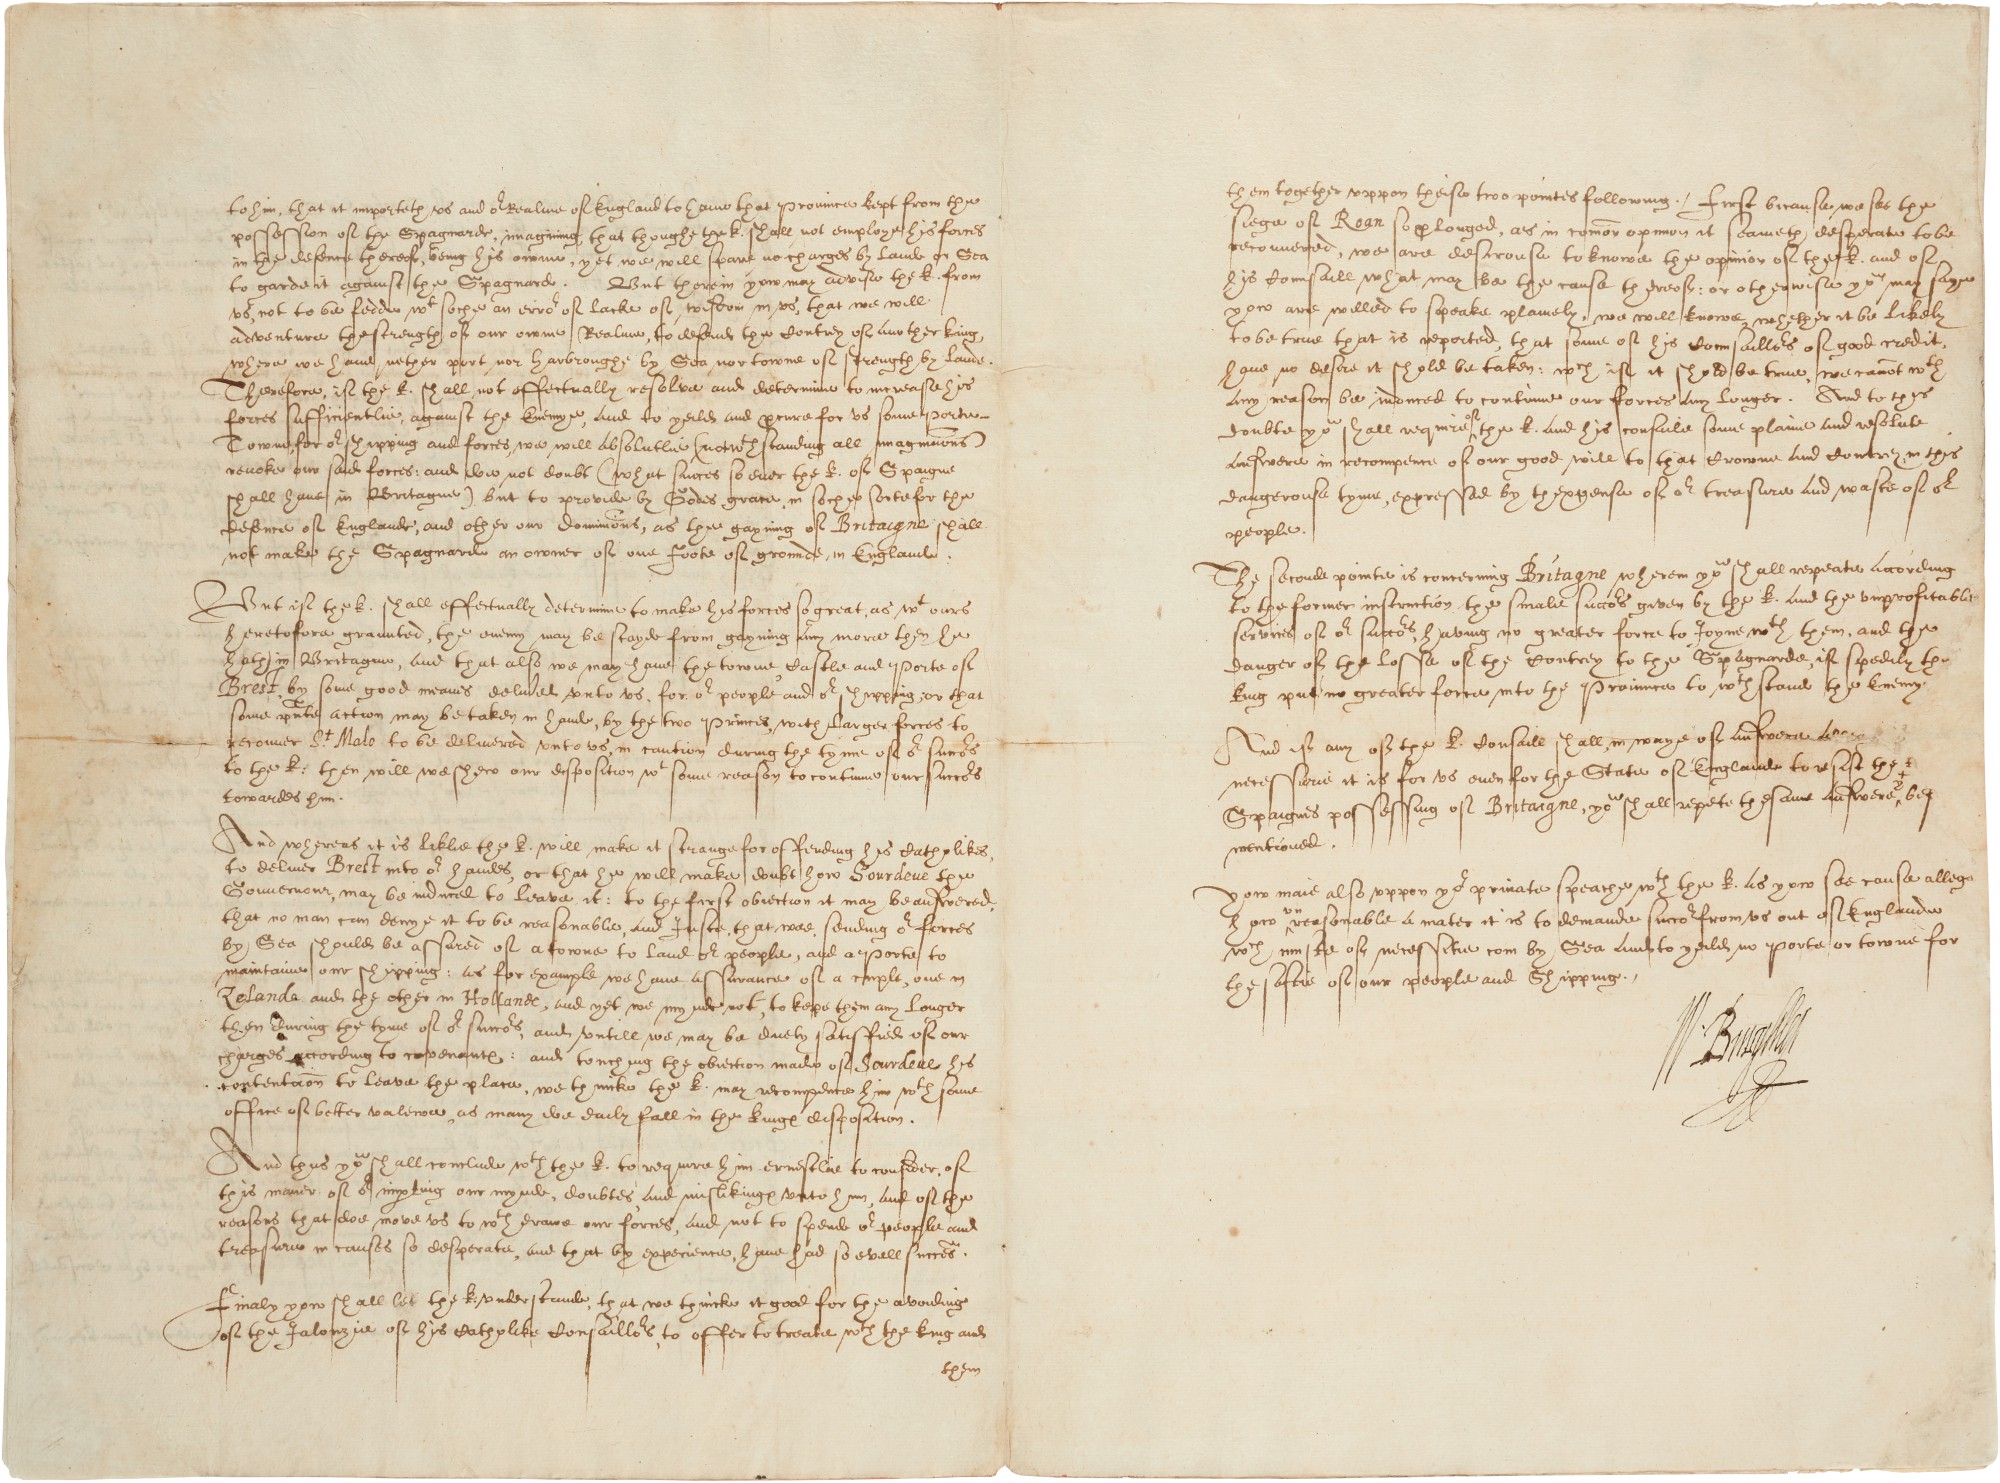 to him, that it importeth us and or Realme of England to have that Province kept from the
possession of the Spagnarde, imagining, that thoughe the k. shall not employe his forces
in the defence therof, being his owne, yet we will spare no charges by Lande or Sea
to garde it against the Spagnarde. But therein yow may advise the k. from
us, not to be fedde wt soche an error of lacke of wisdom in us, that we will
adventure the strength of our owne Realme, to defend the Contrey of another king,
where we have nether port nor harbroughe by Sea nor towne of strength by Lande.
Therefore, if the k. shall not effectually resolve and determine to increase his
forces sufficientlie, against the Enemye, and to yelde and procure for us some Porte
Towne, for or shipping and forces, we will absolutlie (notwthstanding all imaginacons)
revoke our said forces: and doe not doubt (what succes so ever the k. of Spaigne
shall have in Britagne) but to provide by Godes grace, in soche sorte for the
defence of Englande, and other our dominions, as the gayning of Britaigne shall
not make the Spagnarde an owner of one foote of grounde in Englande.
But if the k. shall effectually determine to make his forces so great, as wt ours
heretofore graunted, the enemy may be stayde from gayning any more then he
hath in Britagne, and that also we may have the towne Castle and Porte of
Brest, by some good meanes deliverd unto us, for or people and or shipping, or that
some pnte action may be taken in hande, by the two Princes, with larger forces to
recover St Malo to be delivered unto us, in caution during the tyme of or succors
to the k: then will we shew our disposition wt some reason to continue our succors
towardes him.
And whereas it is liklie the k. will make it strange for offending his Catholikes,
to deliver Brest into or handes, or that he will make doubt how Sourdeue the
Governour, may be induced to leave it: to the first obiection it may be answered,
that no man can denye it to be reasonable, and Juste, that wee, sending or forces
by Sea should be assured of a towne to land or people, and a Porte to
maintaine our shipping: as for example we have assurance of a cuple, one in
Zelande and the other in Hollande, and yet we mynde not, to kepe them any longer
then during the tyme of or succors, and untill we may be duely satisfied of our
charges according to covenants: and touching the obiection made of Sourdeue his
contentacon to leave the place, we thincke the k. may recompence him wth some
office of better valewe, as many doe daily fall in the kings disposition.
And thus yow shall conclude wth the k. to require him ernestlie to consider, of
this maner of or imparting our mynde, doubtes, and mislikings unto him, and of the
reasons that doe move us to wthdrawe our forces, and not to spende or people and
treasure in causes so desperate, and that by experience, have had so evell succes.
Finaly yow shall let the k: understande, that we thincke it good for the avoiding
of the Jalouzie of his Catholike Consaillors, to offer to treate wth the king and
them
them together uppon theise two pointes following./ First bicause we see the
siege of Roan so prolonged, as in comon opinion it seameth desperate to be
recouvered, we are desirouse to knowe the opinion of the k. and of
his Consaill what may be the cause thereof: or otherwise yow may saye
yow are willed to speake plainely, we will knowe, whether it be likely
to be true that is reported, that some of his Consaillors of good credit,
have no desire it shold be taken: wch if it shold be true, we cannot wth
any reason be induced to continue our forces any longer. And to this
doubte yow shall require of the k. and his consaile some plaine and resolute
answere in recompence of our good will to that Crowne and Contrey in this
dangerouse tyme, expressed by the expense of or treasure and waste of or
people.
The seconde pointe is concerning Britagne wherein yow shall repeate according
to the former instruction, the smale succors given by the k. and the unprofitable
services of or succors, having no greater force to Joyne wth them, and the
danger of the losse of the Contrey to the Spagnarde, if spedily the
king put no greater force into the Province to wthstand the Enemy.
And if any of the k. Consaill shall in waye of answere
necessarie it is for us even for the State of Englande to resist the
Spaignes possessing of Britaigne, yow shall repete the same answere, bef
mentioned.
yow maie also uppon yor private speache wth the k. as yow see cause allege
how unreasonable a mater it is to demande succor from us out of Englande
wch must of necessitie com by Sea and to yelde no Porte or towne for
the saftie of our people and Shipping./
W. Burghley